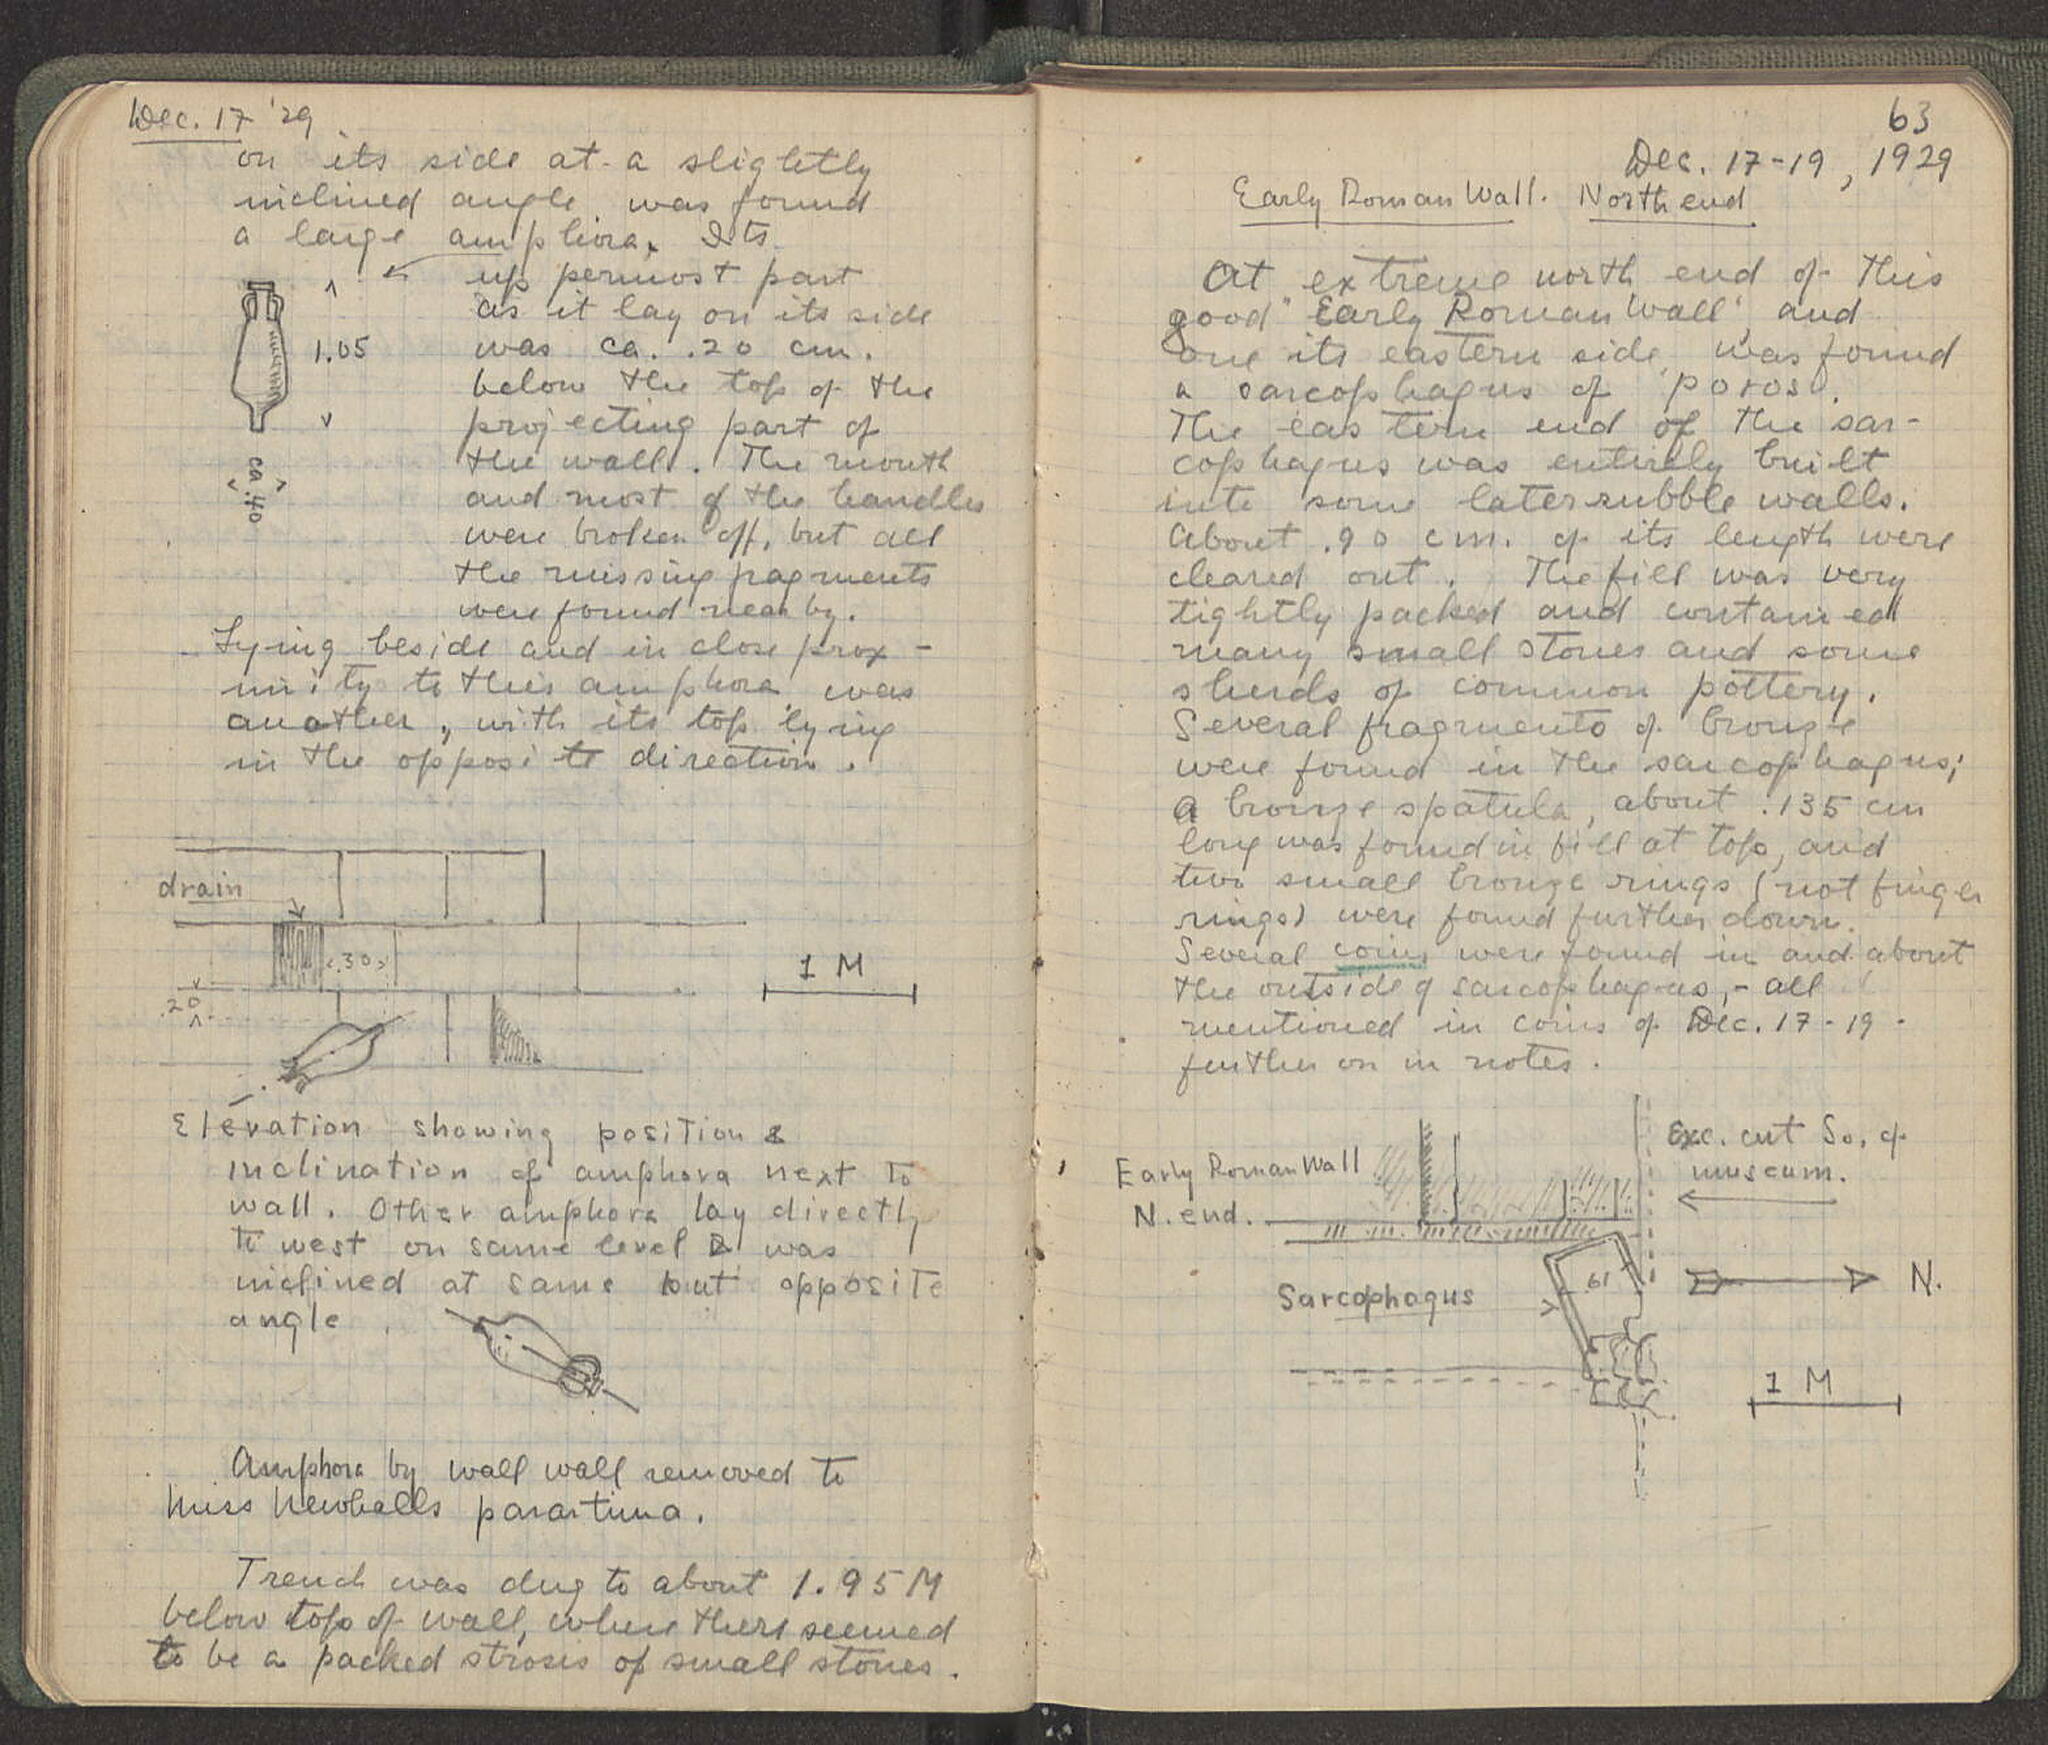 Dec. 17 '29
on its side at a slightly
inclined angle was found
a large amphora. Its
uppermost part
as it lay on its side
was ca. .20 cm.
below the top of the
projecting part of
the wall. The mouth
and most of the handles
were broken off, but all
the missing fragments
were found near by.
1.05
ca .40
Lying beside and in close prox-
imity to this amphora was
another, with its top lying
in the opposite direction.
drain
.30
.20
1 M
Elevation showing position &
inclination of amphora next to
wall. Other amphora lay directly
to west on same level & was
inclined at same but opposite
angle.
Amphora by wall wall removed to
Miss Newhalls parartima.
Trench was dug to about 1.95 M
below top of wall, where there seemed
to be a packed strosis of small stones.
63
Dec. 17-19, 1929
Early Roman Wall. North end
At extreme north end of this
good "Early Roman Wall", and
one its eastern side, was found
a sarcophagus of poros.
The eastern end of the sar-
cophagus was entirely built
into some later rubble walls.
About .90 cm. of its length were
cleared out. The fill was very
tightly packed and contained
many small stones and some
sherds of common pottery.
Several fragments of bronze
were found in the sarcophagus;
a bronze spatula, about .135 cm
long was found in fill at top, and
two small bronze rings (not finger
rings) were found further down.
Several coins were found in and about
the outside of sarcophagus, - all
mentioned in coins of Dec. 17-19 -
further on in notes.
Early Roman Wall
N. end.
Exc. cut So. of
museum.
Sarcophagus
.61
N.
1 M